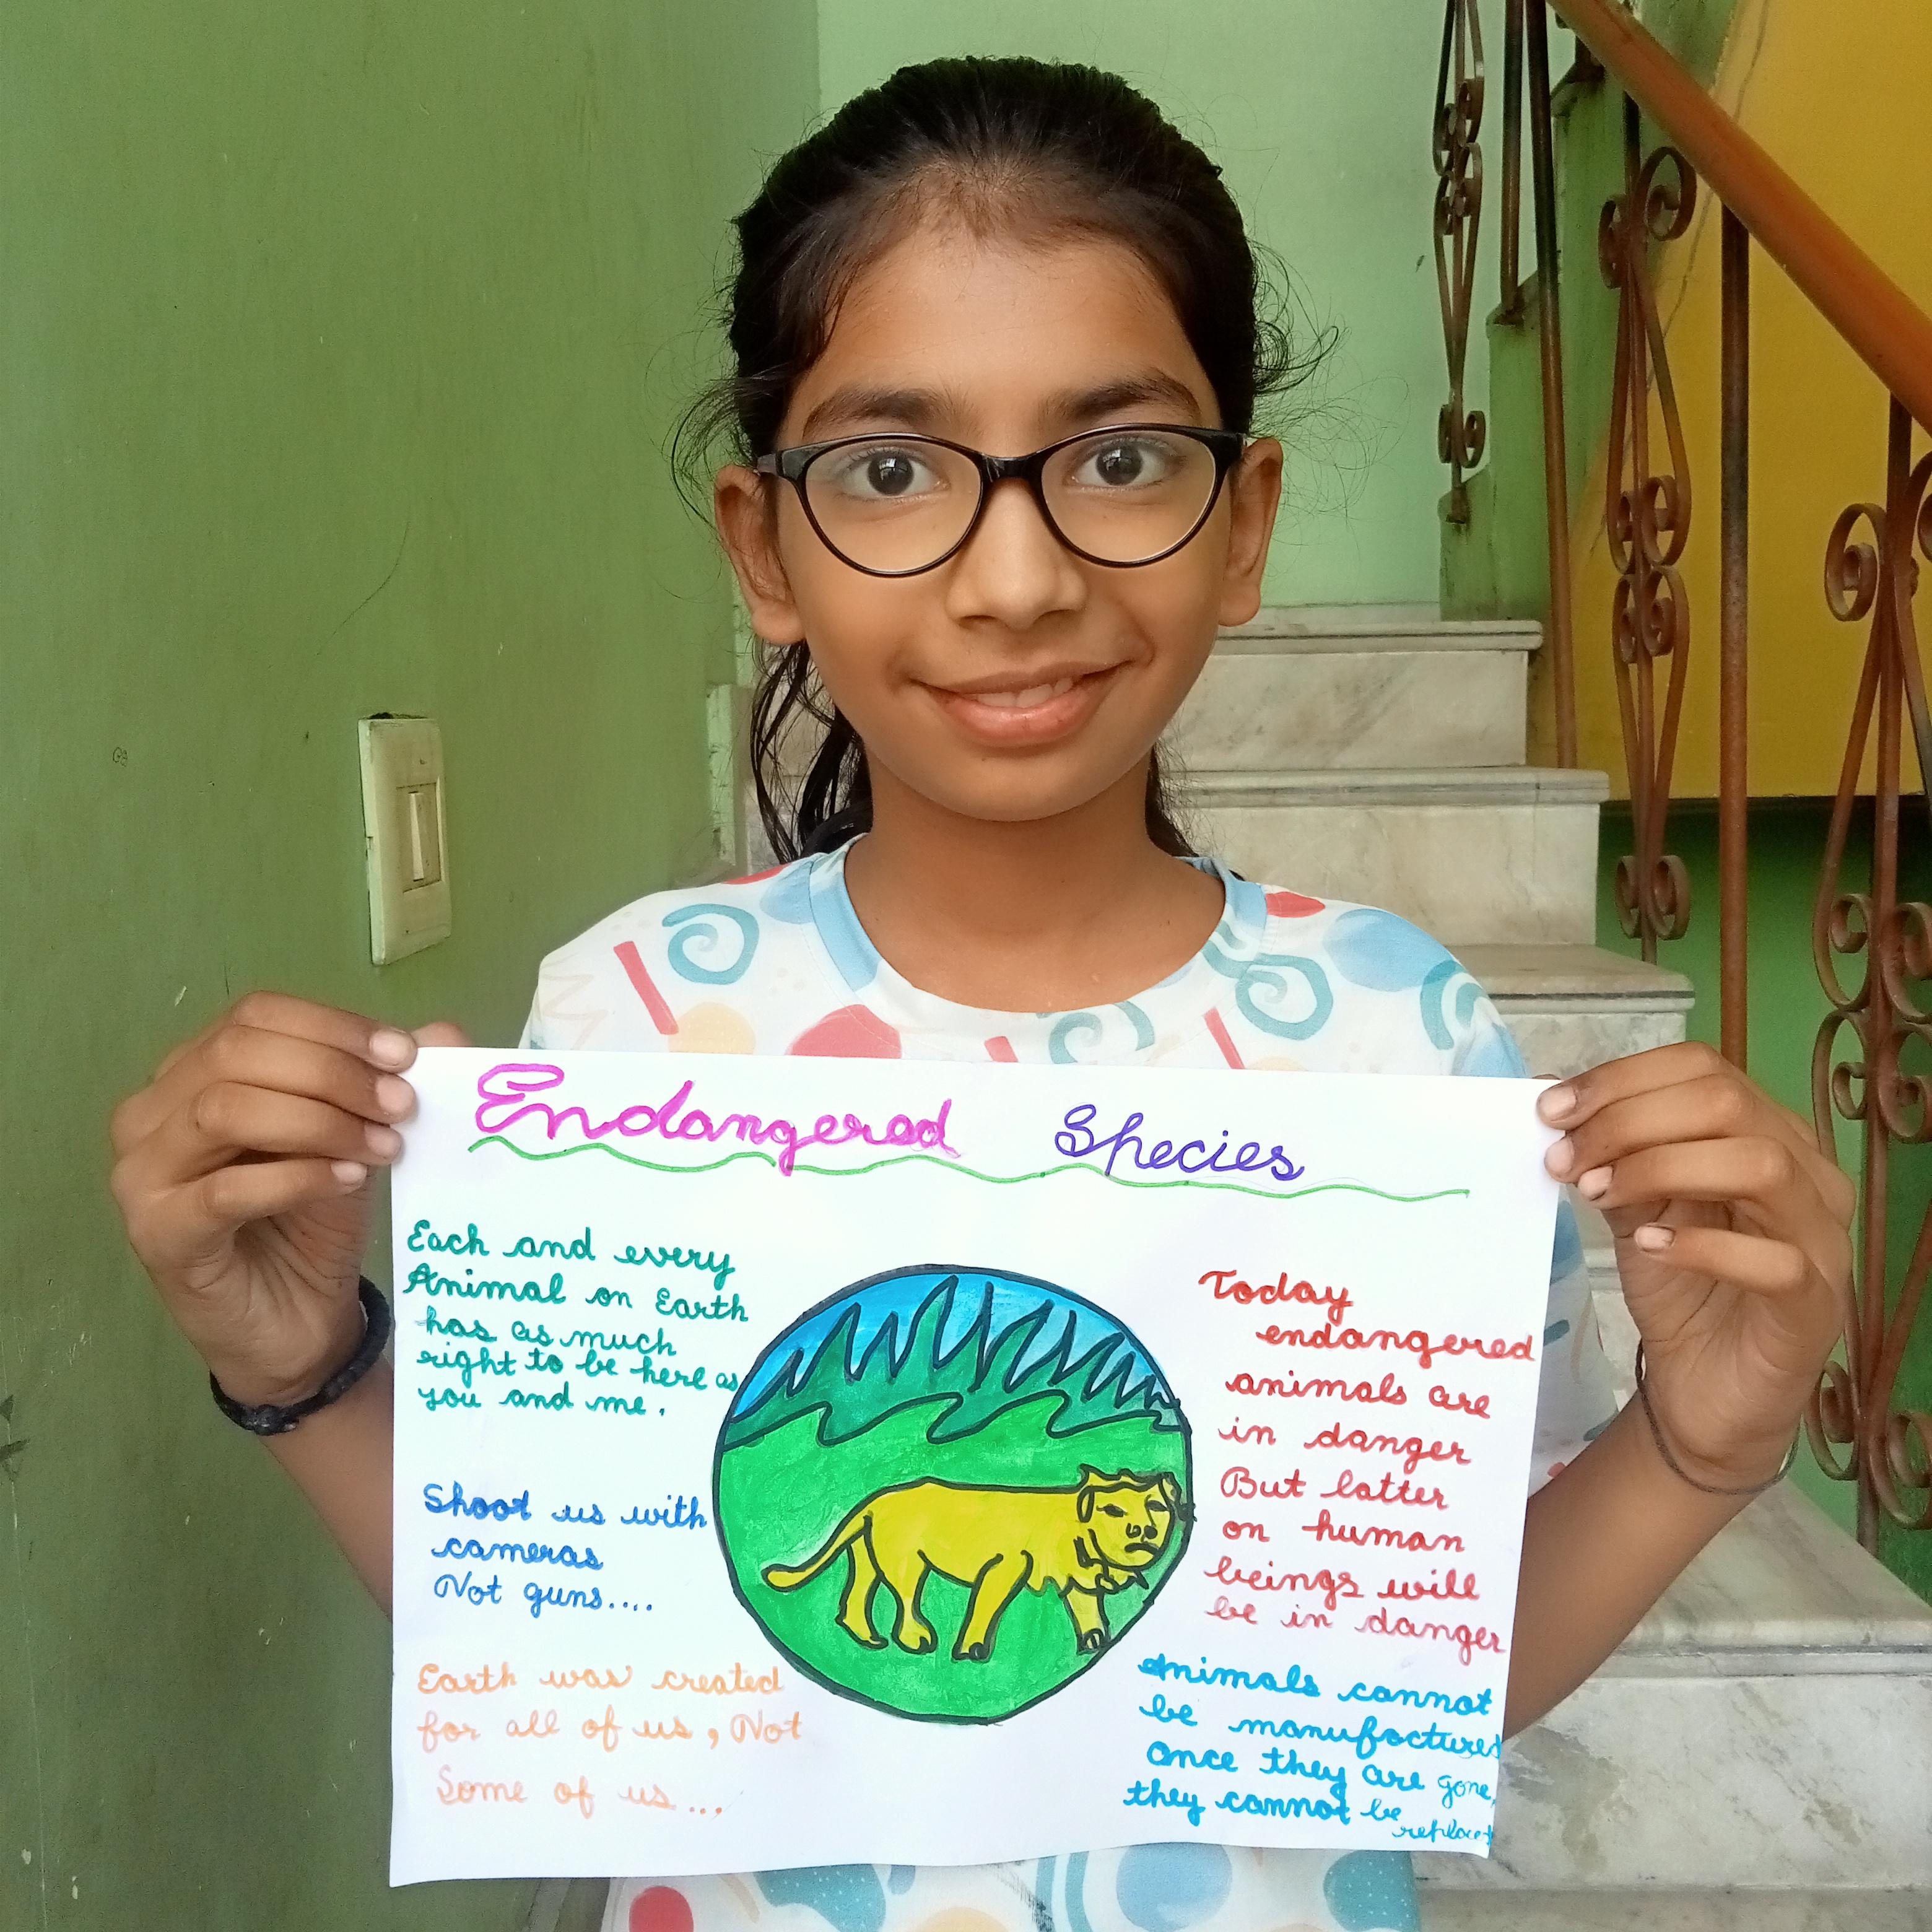 Endangered Species
Each and every
Animal on Earth
has as much
right to be here as
you and me.
Shoot us with
cameras
Not guns....
Earth was created
for all of us, Not
Some of us...
Today
endangered
animals are
in danger
But latter
on human
beings will
be in danger
Animals cannot
be manufactured
once they are gone,
they cannot be